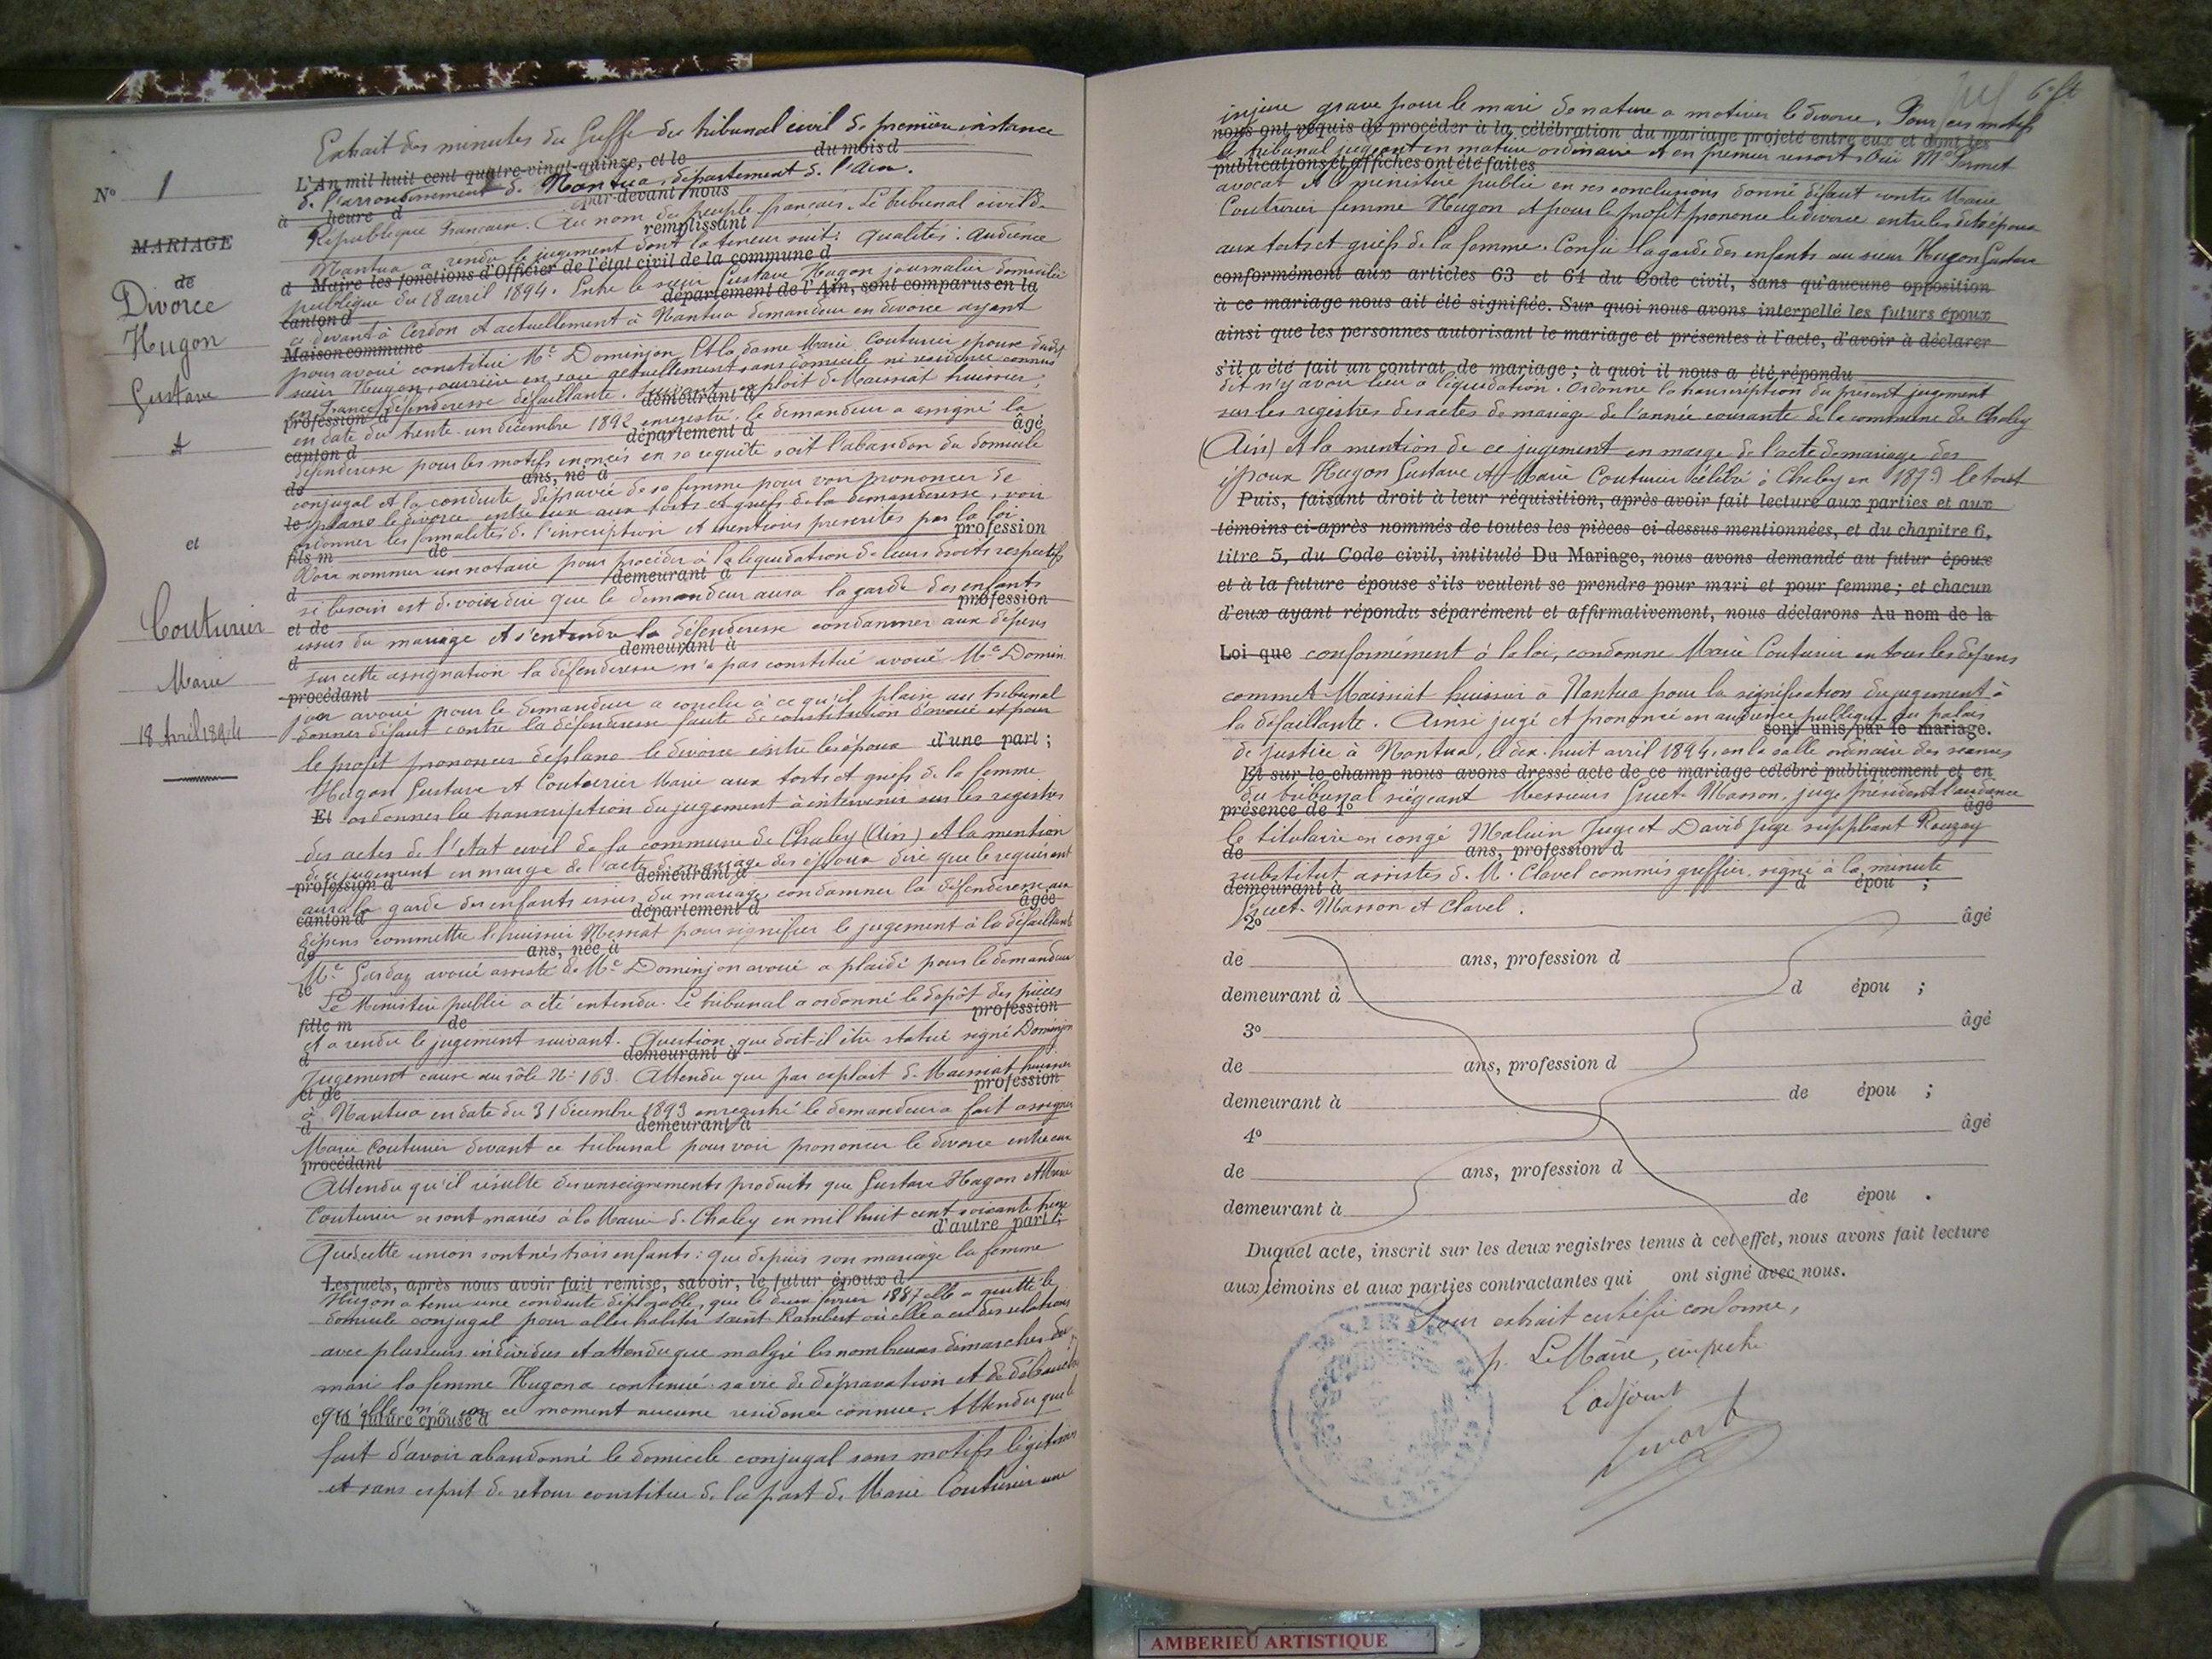 N° 1
MARIAGE
de
Divorce
Hugon
Gustave
et
Couturier
Marie
18 Avril 1894
Extrait des minutes du Greffe du tribunal civil de première instance
L'An mil huit cent quatre-vingt-quinze, et le du mois d
de l'arrondissement de Nantua, département de l'Ain.
à heure d par-devant nous
République Francaise. Au nom du peuple français. Le tribunal civil de
remplissant
Nantua a rendu le jugement dont la teneur suit: Qualités: Audience
d Maire les fonctions d'Officier de l'état civil de la commune d
publique du 18 avril 1894. Entre le sieur Gustave Hugon journalier domicilié
canton d département de l'Ain, sont comparus en la
ci devant à Cerdon et actuellement à Nantua demandeur en divorce ayant
Maison commune
pour avoué constitué Me Dominjon Et la dame Marie Couturier épouse dudit
sieur Hugon, ouvrière en soie actuellement sans domicile ni residence connus
en France, défenderesse défaillante. Suivant exploit de Maissiat huissier,
profession d demeurant à
en date du trente-un décembre 1892 enregistré. le demandeur a assigné la
canton d département d âgé
défenderesse pour les motifs enoncés en sa requête soit l'abandon du domicile
de ans, né à
conjugal et la conduite dépravée de sa femme pour voir prononcer de
le plano le divorce entre eux aux torts et griefs de la demanderesse, voir
ordonner les formalités de l'inscription et mentions prescrites par la loi,
fils m de profession
Voir nommer un notaire pour procéder à la liquidation de leurs droits respectifs
d demeurant à
si besoin est de voir dire que le demandeur aura la garde des enfants
et de profession
issus du mariage et s'entendre la défenderesse condamner aux dépens
d demeurant à
sur cette assignation la défenderesse n'a pas constitué avoué Me Domin
procédant
jon avoué pour le demandeur a conclu à ce qu'il plaise au tribunal
donner défaut contre la défenderesse faute de constitution d'avoué et pour
le profit prononcer de plano le divorce entre les époux d'une part;
Hugon Gustave et Couturier Marie aux torts et griefs de la femme
Et ordonner la transcription du jugement à intervenir sur les registres
des actes de l'etat civil de la commune de Chaley (Ain) et la mention
de ce jugement en marge de l'acte de mariage des époux dire que le requérant
profession d demeurant à
aura la garde des enfants issus du mariage, condamner la défenderesse aux
canton d département d âgée
dépens commettre l'huissier Messiat pour signifier le jugement à la défaillante
de ans, née à
Me Gardaz avoué assisté de Me Dominjon avoué a plaidé pour le demandeur
le
Le Ministère public a été entendu. Le tribunal a ordonné le dépôt des pièces
fille m de profession
et a rendu le jugement suivant. Question, que doit-il être statué signé Dominjon
d demeurant à
Jugement cause au rôle N° 169. Attendu que par exploit de Maissiat huissier
et de profession
à Nantua en date du 31 décembre 1893 enregistré le demandeur a fait assigner
d demeurant à
Marie Couturier devant ce tribunal pour voir prononcer le divorce entre eux
procédant
Attendu qu'il résulte des renseignements produits que Gustave Hugon et Marie
Couturier se sont mariés à la Mairie de Chaley en mil huit cent soixante treize
d'autre part;
Que de cette union sont nés trois enfants: que depuis son mariage la femme
Lesquels, après nous avoir fait remise, savoir, le futur époux d
Hugon a tenu une conduite déplorable, que le deux février 1887 elle a quitté le
domicile conjugal pour aller habiter Saint Rambert où elle a eu des relations
avec plusieurs individus et attendu que malgré les nombreuses démarches du
mari la femme Hugon a continué sa vie de dépravation et de débauche
qu'elle n'a en ce moment aucune residence connue. Attendu que le
et la future épouse d
fait d'avoir abandonné le domicile conjugal sans motifs légitimes
et sans esprit de retour constitue de la part de Marie Couturier une
6 ft
injure grave pour le mari de nature a motiver le divorce. Pour ces motifs
nous ont requis de procéder à la célébration du mariage projeté entre eux et dont les
le tribunal jugeant en matière ordinaire et en premier ressort. Ouï Me
publications et affiches ont été faites
avocat et le ministère public en ses conclusions donne défaut contre Marie
Couturier femme Hugon et pour le profit prononce le divorce entre les dits époux
aux torts et griefs de la femme. Confie la garde des enfants au sieur Hugon Gustave
conformément aux articles 63 et 64 du Code civil, sans qu'aucune opposition
à ce mariage nous ait été signifiée. Sur quoi nous avons interpellé les futurs époux
ainsi que les personnes autorisant le mariage et présentes à l'acte, d'avoir à déclarer
s'il a été fait un contrat de mariage; à quoi il nous a été répondu
dit n'y avoir lieu à liquidation. Ordonne la transcription du présent jugement
sur les registres des actes de mariage de l'année courante de la commune de Chaley
(Ain) et la mention de ce jugement en marge de l'acte de mariage des
époux Hugon Gustave et Marie Couturier célébré à Chaley en 1873 le tout
Puis, faisant droit à leur réquisition, après avoir fait lecture aux parties et aux
témoins ci-après nommés de toutes les pièces ci-dessus mentionnées, et du chapitre 6,
titre 5, du Code civil, intitulé Du Mariage, nous avons demandé au futur époux
et à la future épouse s'ils veulent se prendre pour mari et pour femme; et chacun
d'eux ayant répondu séparément et affirmativement, nous déclarons Au nom de la
Loi que conformément à la loi, condamne Marie Couturier en tous les dépens
commet Maissiat huissier à Nantua pour la signification du jugement à
la défaillante. Ainsi jugé et prononcé en audience publique du palais
sont unis par le mariage.
de justice à Nantua, le dix-huit avril 1894, en la salle ordinaire des séances
Et sur le champ nous avons dressé acte de ce mariage célébré publiquement et en
du tribunal siégeant Messieurs Guet-Masson, juge président l'audience
présence de 1° âgé
le titulaire en congé Maluin Juge et David Juge suppléant Rouzay
de ans, profession d
substitut assistés de M. Clavel commis greffier, signé à la minute
demeurant à d épou ;
Guet-Masson et Clavel.
2° âgé
de ans, profession d
demeurant à d épou ;
3° âgé
de ans, profession d
demeurant à de épou ;
4° âgé
de ans, profession d
demeurant à de épou .
Duquel acte, inscrit sur les deux registres tenus à cet effet, nous avons fait lecture
aux témoins et aux parties contractantes qui ont signé avec nous.
Pour extrait certifié conforme,
p. Le Maire, empêché
L'adjoint
AMBERIEU ARTISTIQUE